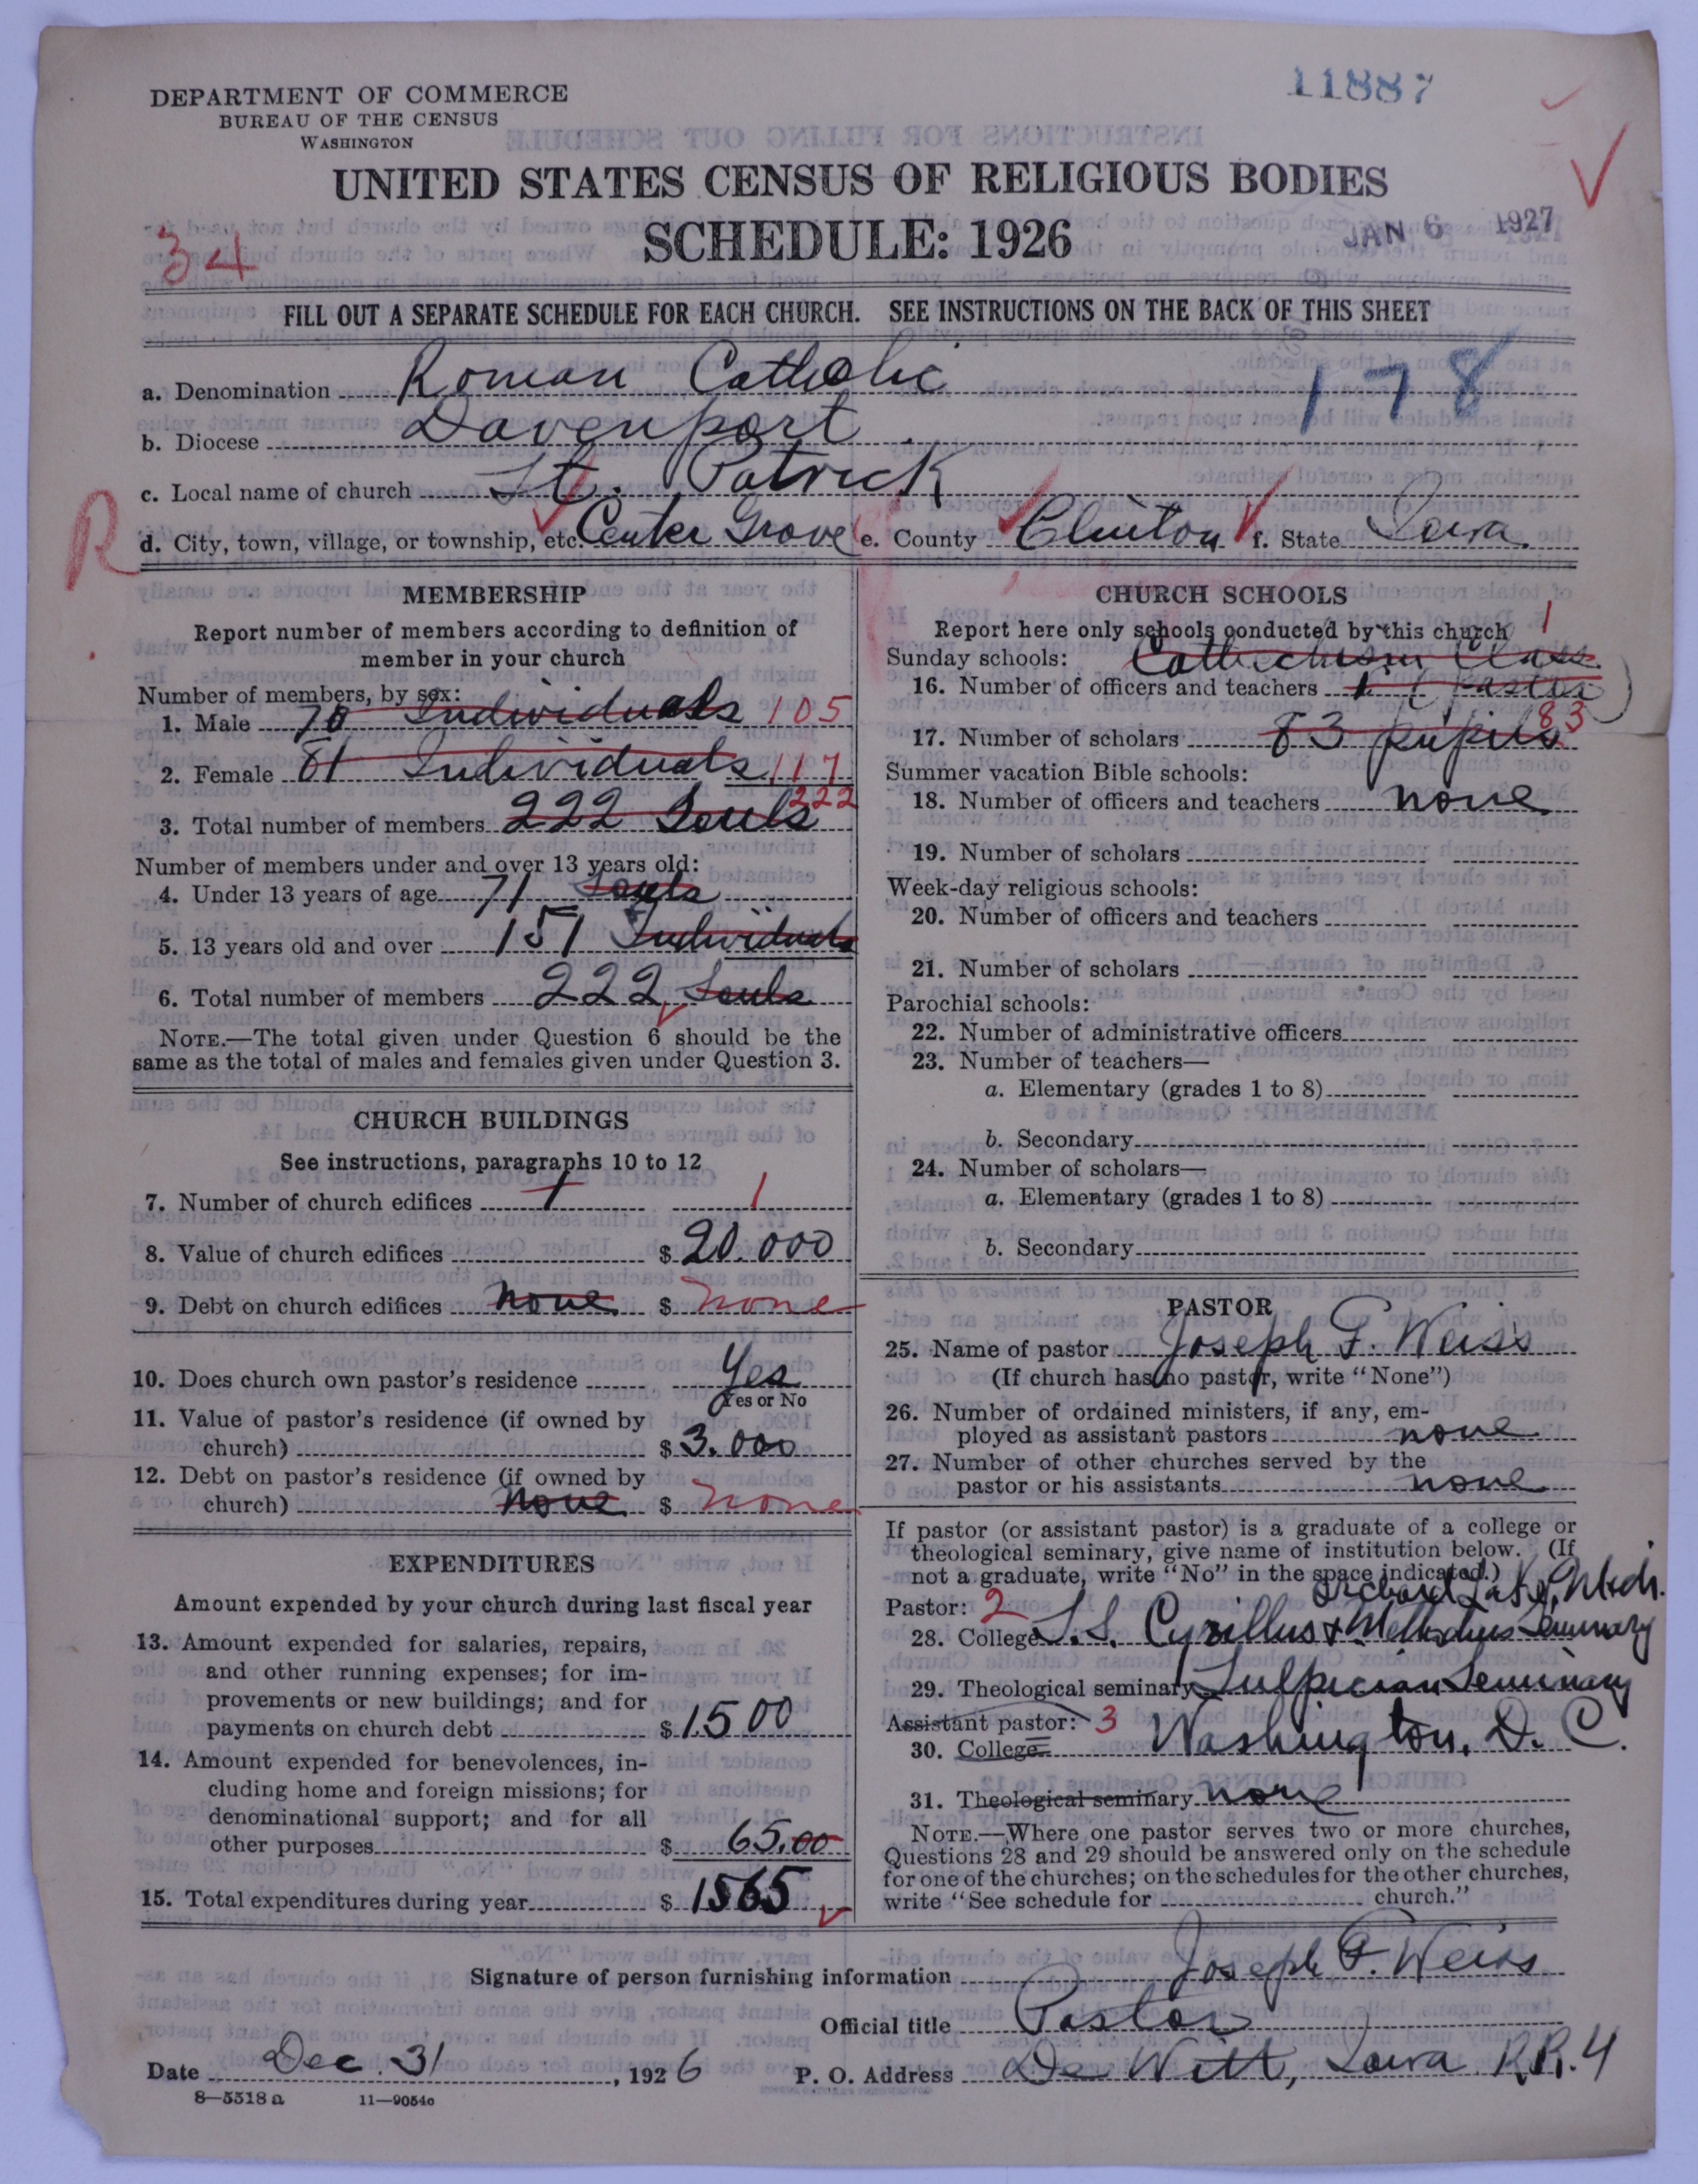 11887
DEPARTMENT OF COMMERCE
BUREAU OF THE CENSUS
WASHINGTON
UNITED STATES CENSUS OF RELIGIOUS BODIES
SCHEDULE: 1926
JAN 6 1927
34
FILL OUT A SEPARATE SCHEDULE FOR EACH CHURCH. SEE INSTRUCTIONS ON THE BACK OF THIS SHEET
178
a. Denomination Roman Catholic
b. Diocese Davenport
c. Local name of church St. Patrick
R
d. City, town, village, or township, etc. Center Grove e. County Clinton f. State Iowa.
MEMBERSHIP
Report number of members according to definition of
member in your church
Number of members, by sex:
1. Male 70 Individuals 105
2. Female 81 Individuals 117
3. Total number of members 222 Souls 222
Number of members under and over 13 years old:
4. Under 13 years of age 71 Souls
5. 13 years old and over 151 Individuals
6. Total number of members 222 Souls
NOTE.—The total given under Question 6 should be the
same as the total of males and females given under Question 3.
CHURCH BUILDINGS
See instructions, paragraphs 10 to 12
7. Number of church edifices 1 1
8. Value of church edifices $ 20.000
9. Debt on church edifices none $ none
10. Does church own pastor's residence Yes
Yes or No
11. Value of pastor's residence (if owned by
church) $ 3.000
12. Debt on pastor's residence (if owned by
church) None $ none
EXPENDITURES
Amount expended by your church during last fiscal year
13. Amount expended for salaries, repairs,
and other running expenses; for im-
provements or new buildings; and for
payments on church debt $ 1500
14. Amount expended for benevolences, in-
cluding home and foreign missions; for
denominational support; and for all
other purposes $ 65.00
15. Total expenditures during year $ 1565
CHURCH SCHOOLS
Report here only schools conducted by this church
Sunday schools: Cathechism Class 1
16. Number of officers and teachers 1 (Pastor)
17. Number of scholars 83 pupils 83
Summer vacation Bible schools:
18. Number of officers and teachers none
19. Number of scholars
Week-day religious schools:
20. Number of officers and teachers
21. Number of scholars
Parochial schools:
22. Number of administrative officers
23. Number of teachers—
a. Elementary (grades 1 to 8)
b. Secondary
24. Number of scholars—
a. Elementary (grades 1 to 8)
b. Secondary
PASTOR
25. Name of pastor Joseph F. Weiss
(If church has no pastor, write "None")
26. Number of ordained ministers, if any, em-
ployed as assistant pastors none
27. Number of other churches served by the
pastor or his assistants none
If pastor (or assistant pastor) is a graduate of a college or
theological seminary, give name of institution below. (If
not a graduate, write "No" in the space indicated.)
Orchard Lake, Mich.
Pastor: 2
28. College S.S. Cyrillus & Methodius Seminary
29. Theological seminary Sulpician Seminary
Assistant pastor: 3 Washington, D. C.
30. College
31. Theological seminary none
NOTE.—Where one pastor serves two or more churches,
Questions 28 and 29 should be answered only on the schedule
for one of the churches; on the schedules for the other churches,
write "See schedule for church."
Signature of person furnishing information Joseph F. Weiss
Official title Pastor
Date Dec. 31, 1926 P. O. Address De Witt, Iowa R.R. 4
8—5518a 11—9054c